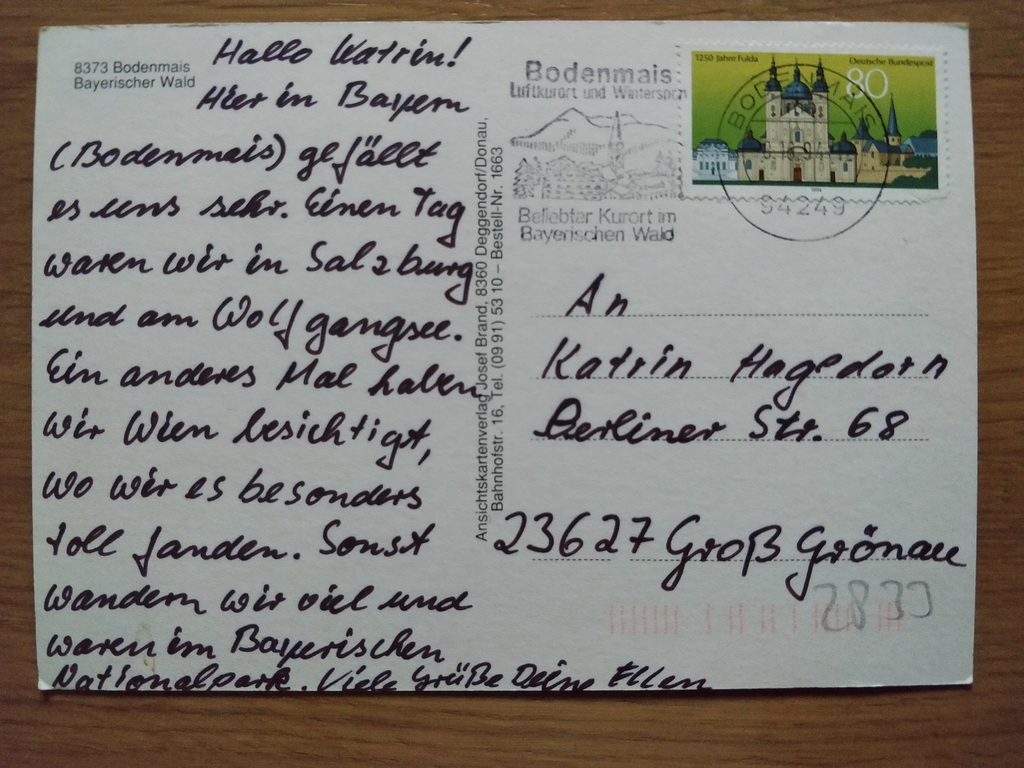 8373 Bodenmais
Bayerischer Wald
Hallo Katrin!
Hier in Bayern
(Bodenmais) gefällt
es uns sehr. Einen Tag
waren wir in Salzburg
und am Wolfgangsee.
Ein anderes Mal haben
wir Wien besichtigt,
wo wir es besonders
toll fanden. Sonst
wandern wir viel und
waren im Bayerischen
Nationalpark. Viele Grüße Deine Ellen
Ansichtskartenverlag Josef Brand, 8360 Deggendorf/Donau,
Bahnhofstr. 16, Tel. (09 91) 53 10 – Bestell-Nr. 1663
Bodenmais
Luftkurort und Wintersport
Beliebter Kurort im
Bayerischen Wald
1250 Jahre Fulda
Deutsche Bundespost
80
1994
BODENMAIS
94249
An
Katrin Hagedorn
Berliner Str. 68
23627 Groß Grönau
2833